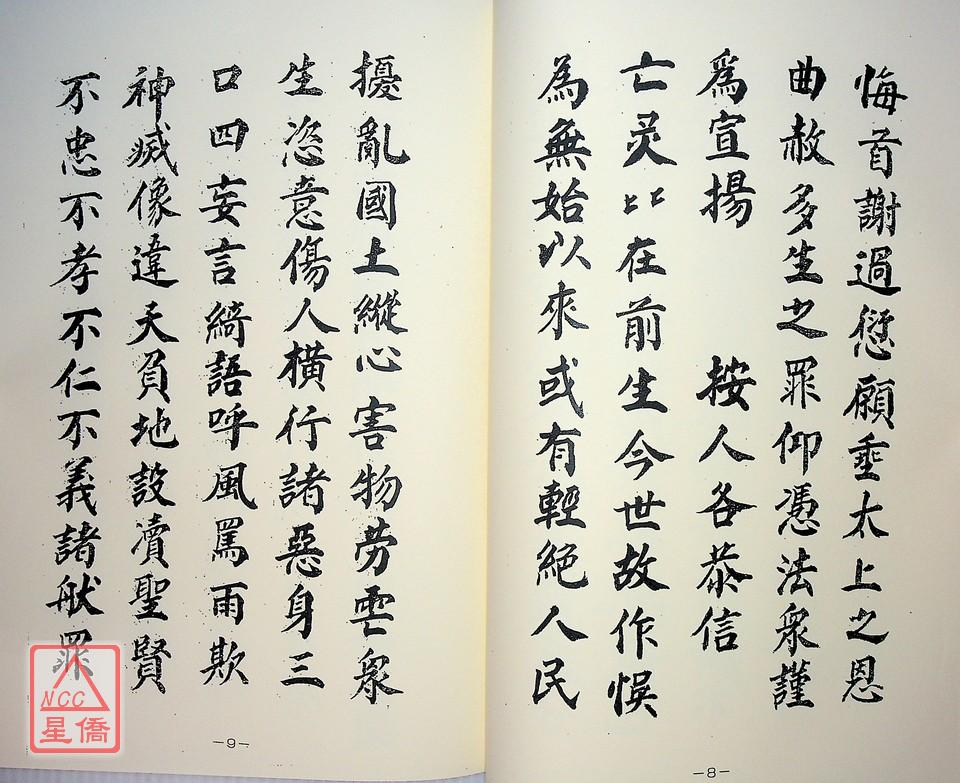 悔首謝過愆願垂太上之恩
曲赦多生之罪仰憑法眾謹
為宣揚　按人各恭信
亡灵比在前生今世故作悞
為無始以來或有輕絕人民
－8－
擾亂國土縱心害物勞雲眾
生恣意傷人橫行諸惡身三
口四妄言綺語呼風罵雨欺
神滅像違天負地設瀆聖賢
不忠不孝不仁不義諸般罪
－9－
NCC
星僑